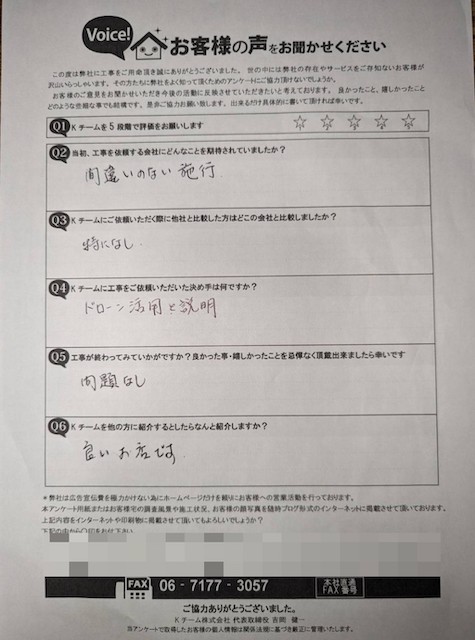 Voice! お客様の声をお聞かせください
この度は弊社に工事をご用命頂き誠にありがとうございました。世の中には弊社の存在やサービスをご存知ないお客様が
沢山いらっしゃいます。その方たちに弊社をよく知って頂くためのアンケートにご協力頂けないでしょうか。
お客様のご意見をお聞かせいただき今後の活動に反映させていただきたいと考えております。良かったこと、嬉しかったこと
どのような些細な事でも結構です。是非ご協力お願い致します。出来るだけ具体的に書いて頂ければ幸いです。
Q1 Kチームを5段階で評価をお願いします ☆ ☆ ☆ ☆ ☆
Q2 当初、工事を依頼する会社にどんなことを期待されていましたか？
間違いのない施行
Q3 Kチームにご依頼いただく際に他社と比較した方はどこの会社と比較しましたか？
特になし.
Q4 Kチームに工事をご依頼いただいた決め手は何ですか？
ドローン活用と説明
Q5 工事が終わってみていかがですか？良かった事・嬉しかったことを忌憚なく頂戴出来ましたら幸いです
問題なし
Q6 Kチームを他の方に紹介するとしたらなんと紹介しますか？
良いお店です.
＊弊社は広告宣伝費を極力かけない為にホームページだけを頼りにお客様への営業活動を行っております。
本アンケート用紙またはお客様宅の調査風景や施工状況、お客様の顔写真を随時ブログ形式のインターネットに掲載させて頂いております。
上記内容をインターネットや印刷物に掲載させて頂いてもよろしいでしょうか？
FAX 06-7177-3057 本社直通
FAX番号
ご協力ありがとうございました。
Kチーム株式会社 代表取締役 吉岡 健一
当アンケートで取得したお客様の個人情報は関係法規に基づき厳正に管理いたします。